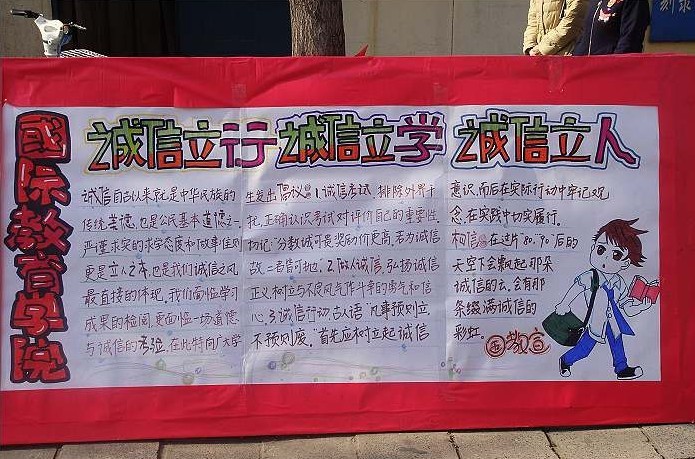 刻录
國际教育学院
诚信立行 诚信立学 诚信立人
诚信自古以来就是中华民族的
传统美德,也是公民基本道德之一,
严谨求实的求学态度和做事准则
更是立人之本,也是我们诚信之风
最直接的体现。我们面临学习
成果的检阅,更面临一场道德
与诚信的考验。在此特向广大学
生发出倡议:1.诚信考试 排除外界干
扰,正确认识考试对评价自己的重要性,
切记"分数诚可贵,奖励价更高,若为诚信
故,二者皆可抛。2.做人诚信,弘扬诚信
正义,树立与不良风气作斗争的勇气和信
心。3.诚信行动 古人语"凡事预则立
不预则废。"首先应树立起诚信
意识,而后在实际行动中牢记观
念,在实践中切实履行。
相信在这片"80、90"后的
天空下会飘起那朵
诚信的云,会有那
条缀满诚信的
彩虹。
国教宣